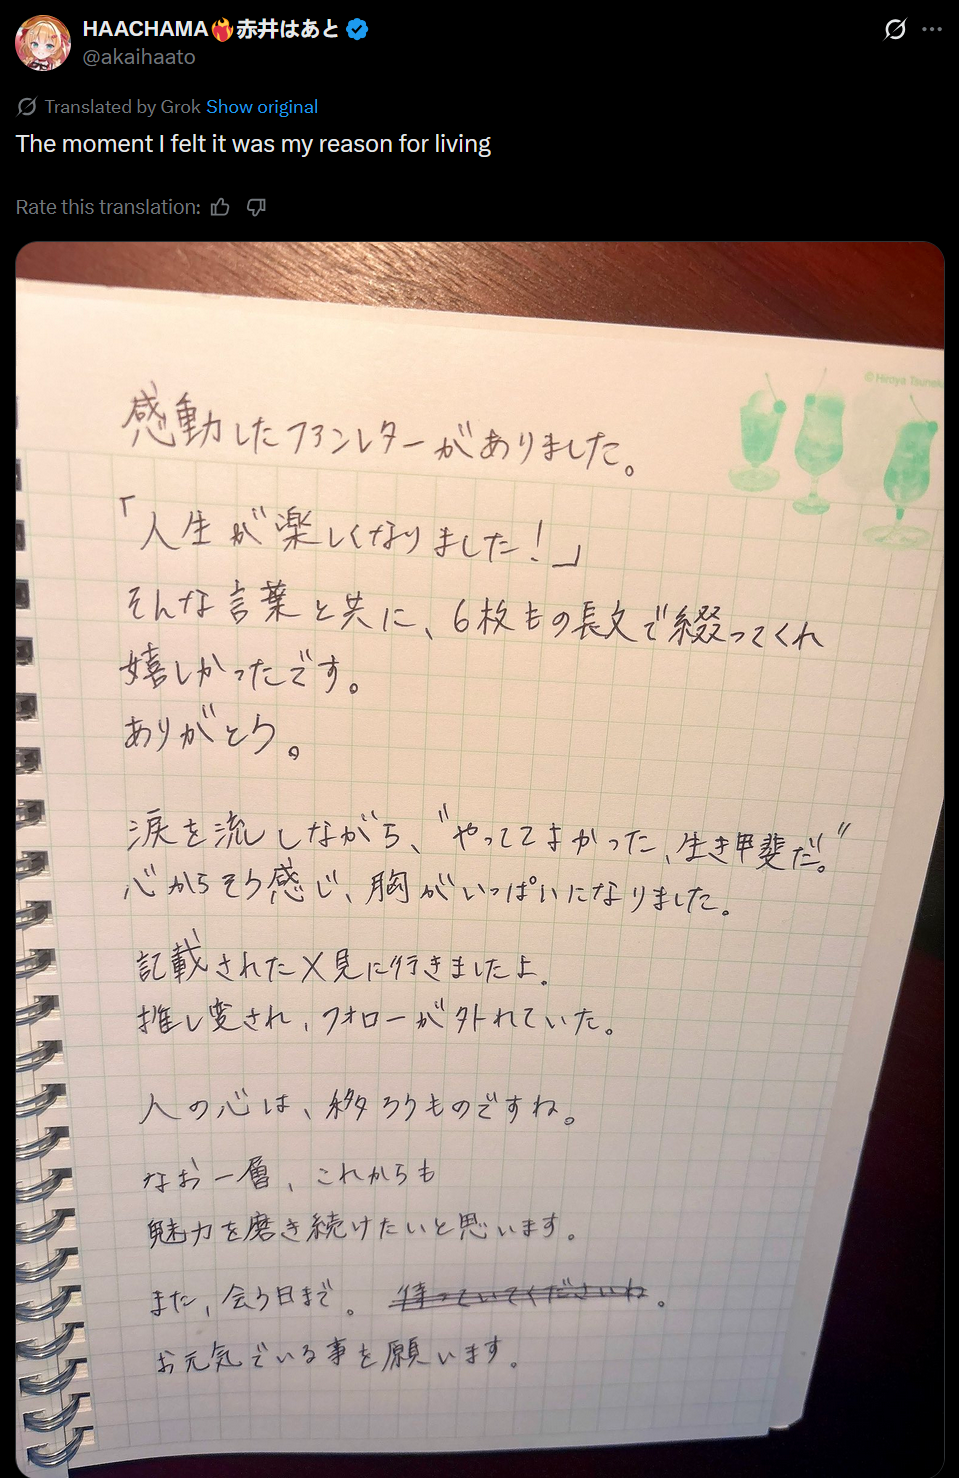 HAACHAMA❤️‍🔥赤井はあと
@akaihaato
Translated by Grok Show original
The moment I felt it was my reason for living
Rate this translation:
© Hiroya Tsuneka
感動したファンレターがありました。
「人生が楽しくなりました!」
そんな言葉と共に、6枚もの長文で綴ってくれ
嬉しかったです。
ありがとう。
涙を流しながら、〝やっててよかった、生き甲斐だ。〟
心からそう感じ、胸がいっぱいになりました。
記載されたX見に行きましたよ。
推し変され、フォローが外れていた。
人の心は、移ろうものですね。
なお一層、これからも
魅力を磨き続けたいと思います。
また、会う日まで。 待っていてくださいね。
お元気でいる事を願います。